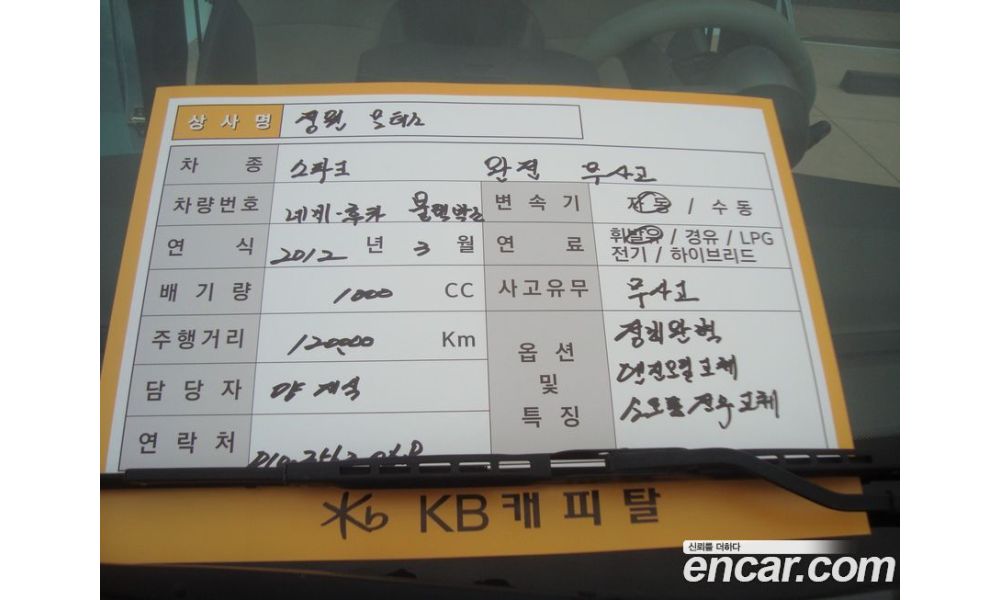 상사명 정원 모터스
차 종 스파크 완전 무사고
차량번호 네비-후카 블랙박스 변속기 자동 / 수동
연 식 2012 년 3 월 연 료 휘발유 / 경유 / LPG
전기 / 하이브리드
배기량 1000 CC 사고유무 무사고
주행거리 120,000 Km 옵션 및 특징
정비완벽
엔진오일교체
담당자
교체
연락처
KB캐피탈
신뢰를 더하다
encar.com